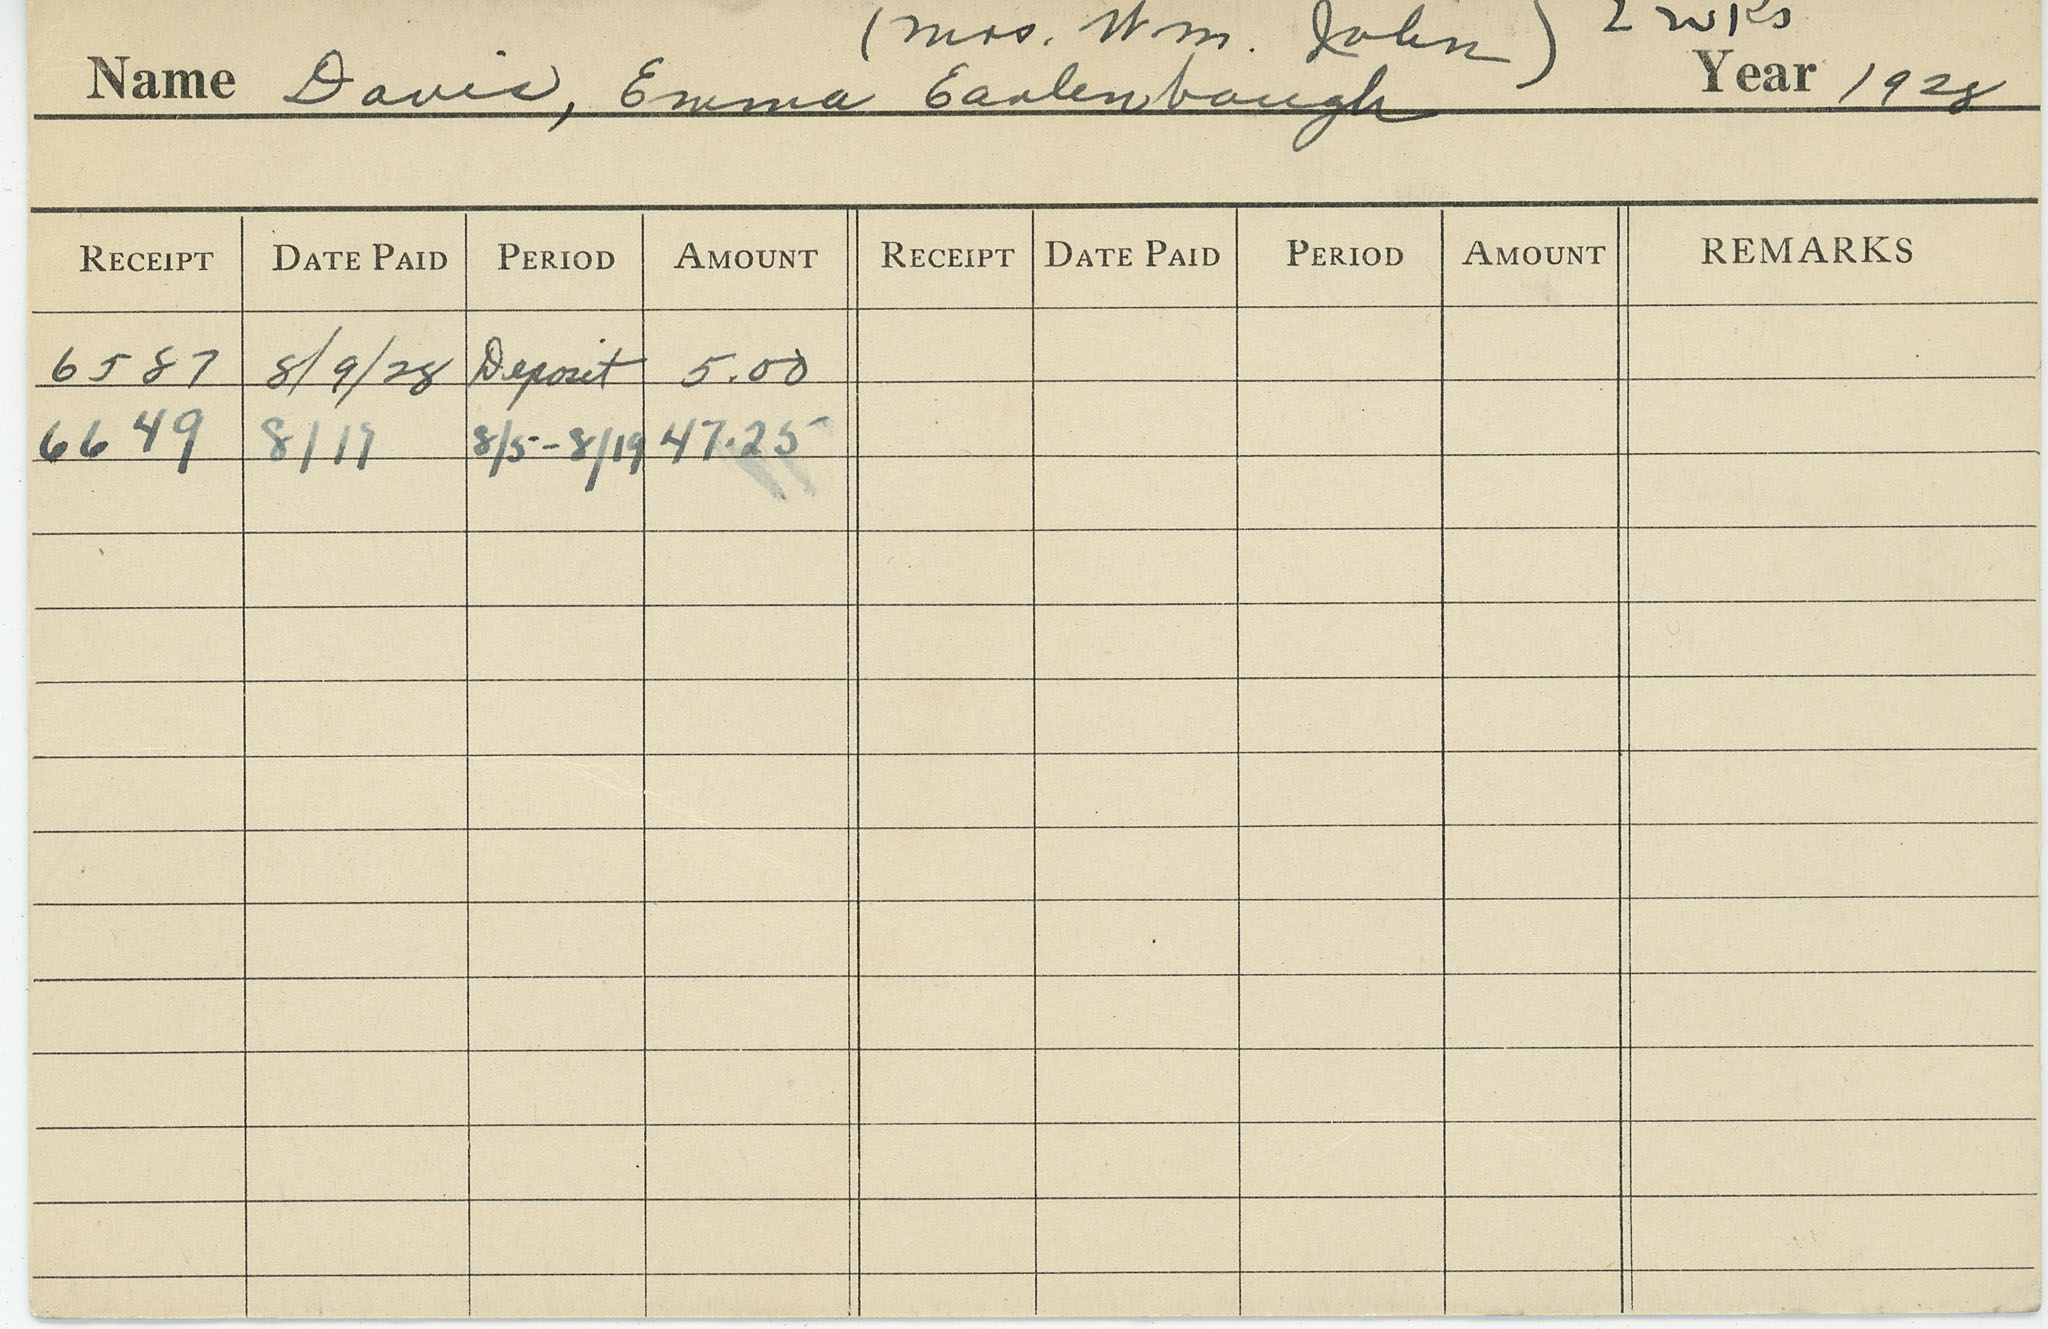 (Mrs. Wm. John) 2 wks
Name Davis, Emma Earlenbaugh Year 1928
RECEIPT DATE PAID PERIOD AMOUNT RECEIPT DATE PAID PERIOD AMOUNT REMARKS
6587 8/9/28 Deposit 5.00
6649 8/19 8/5-8/19 47.25